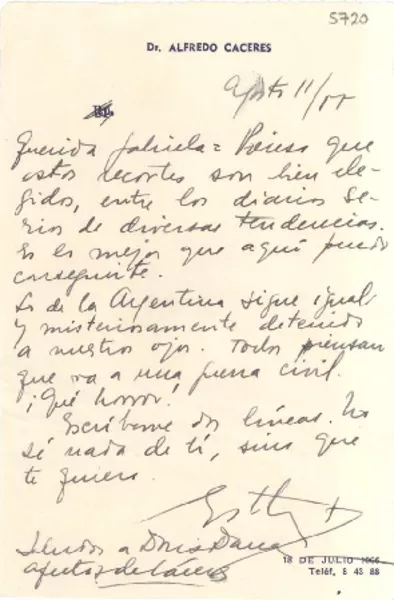 5720
Dr. ALFREDO CACERES
Agosto 11/55
Rp.
Querida Gabriela = Pienso que
estos recortes son bien ele-
gidos, entre los diarios se-
rios de diversas tendencias.
Es lo mejor que aquí puedo
conseguirte.
Lo de la Argentina sigue igual
y misteriosamente detenido
a nuestros ojos. Todos piensan
que va a una guerra civil.
¡Qué horror!
Escríbeme dos líneas. No
sé nada de ti, sino que
te quiero.
Esther
Saludos a Doris Dana
afectos de Cáceres
18 DE JULIO
Teléf. 8 43 88